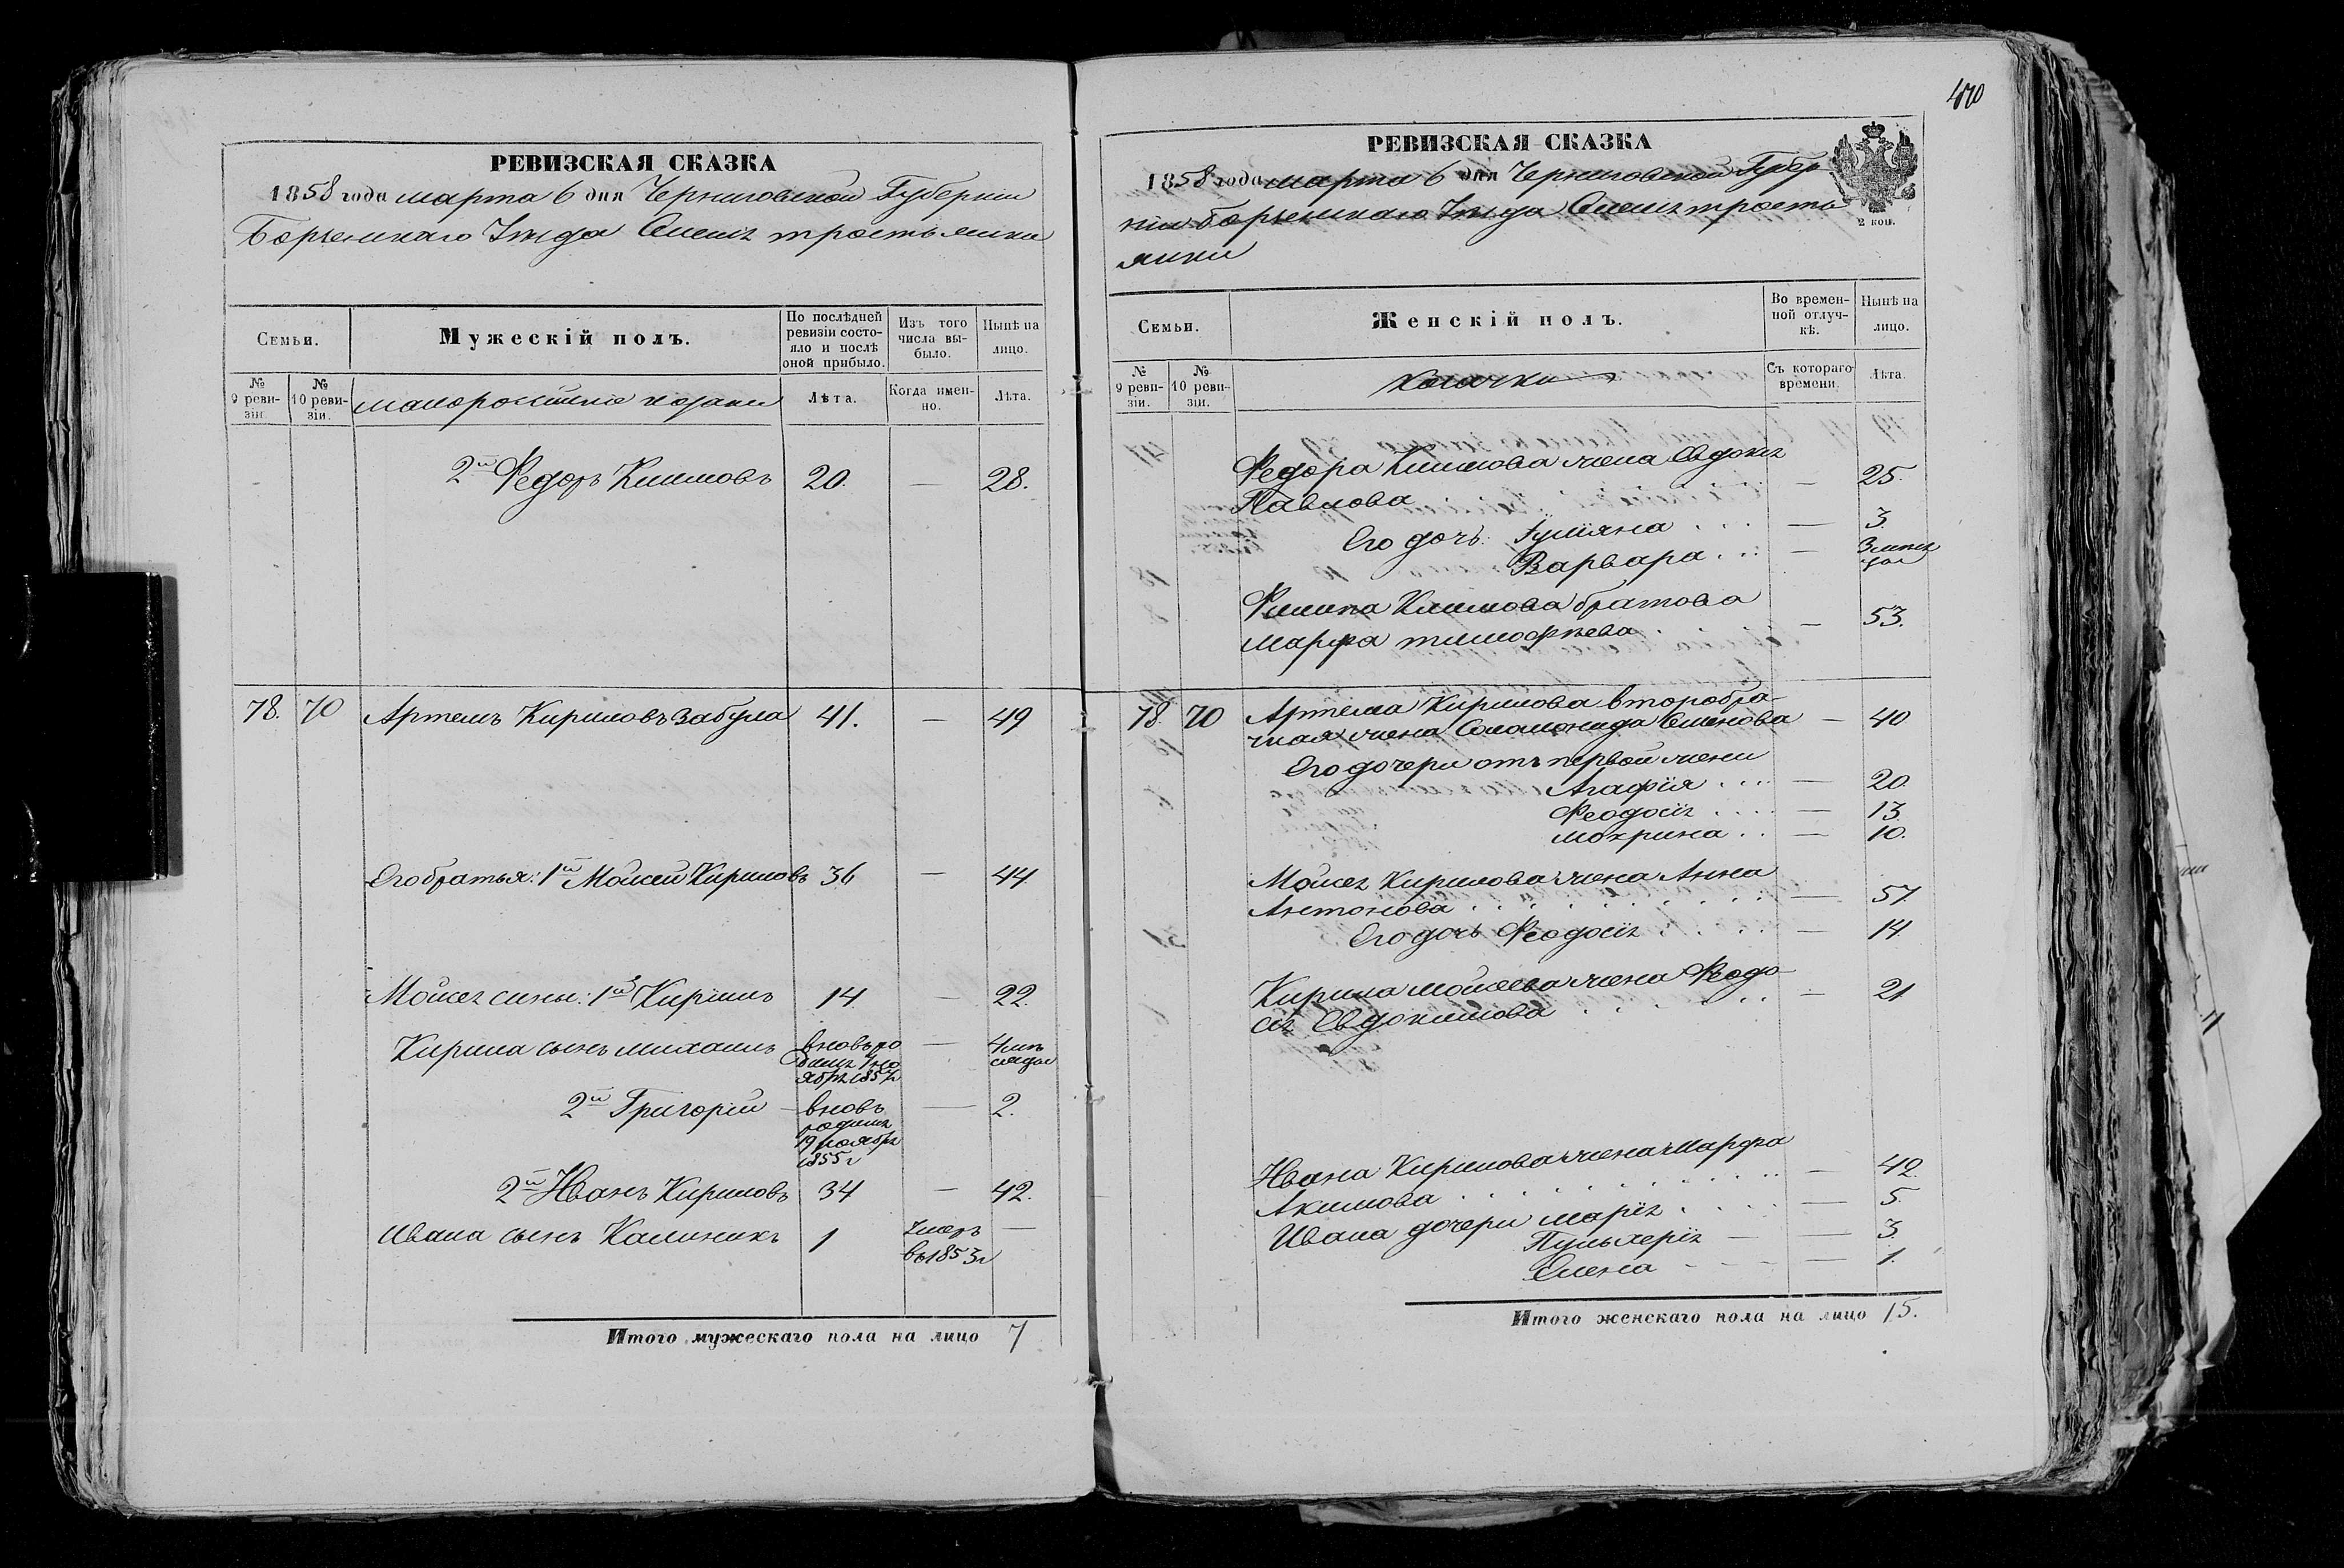 РЕВИЗСКАЯ СКАЗКА
1858 года марта 6 дня Черниговской Губернии
Борзенскаго Уезда тростянки
Семьи.
Мужескій полъ.
По послѣдней ревизіи состояло и послѣ оной прибыло.
Изъ того числа выбыло.
Нынѣ на лицо.
№ 9 ревизіи.
№ 10 ревизіи.
малороссійскіе козаки
Лѣта.
Когда именно.
Лѣта.
2й Федоръ Климовъ 20. — 28.
78. 70 Артемъ Кириловъ Забула 41. — 49
Его братья: 1й Моисей Кириловъ 36 — 44
Моисея сины: 1й Кирилъ 14 — 22.
Кирила сынъ михаилъ вновь ро — 4 мѣ
ябрѣ 1857 сяца
2й Григорій вновь — 2.
родился
19 ноября
1855 г
2й Иванъ Кириловъ 34 — 42.
Ивана сынъ Калиникъ 1 умеръ —
въ 1853 г
Итого мужескаго пола на лицо 7
470
РЕВИЗСКАЯ СКАЗКА
1858 года марта 6 дня Черниговской Губер
ніи Борзенскаго Уезда тростя
нки
2 коп.
Семьи.
Женскій полъ.
Во временной отлучкѣ.
Нынѣ на лицо.
№ 9 ревизіи.
№ 10 ревизіи.
козачки
Съ котораго времени.
Лѣта.
Федора Климова жена Евдокія
Павлова — 25.
Его дочь: Іулияна . . . — 3.
Варвара . . . — 3 меся
ца
Филипа Климова братова
марфа тимофѣева — 53.
78. 70 Артема Кирилова второбра-
чная жена Соломонида Семенова — 40
Его дочери отъ первой жени
Агафія . . . — 20.
Феодосія . . . — 13
мокрина . . — 10.
Моисея Кирилова жена Анна
Антонова . . . . . . — 57.
Его дочь Феодосія . . . — 14
Кирила моисеева жена Феодо-
сія Евдокимова . . . — 21
Ивана Кирилова жена марфа
Акимова . . . . . . — 42.
Ивана дочери марія . . . — 5.
Пульхерія — — 3.
Елена - - - — 1.
Итого женскаго пола на лицо 15.